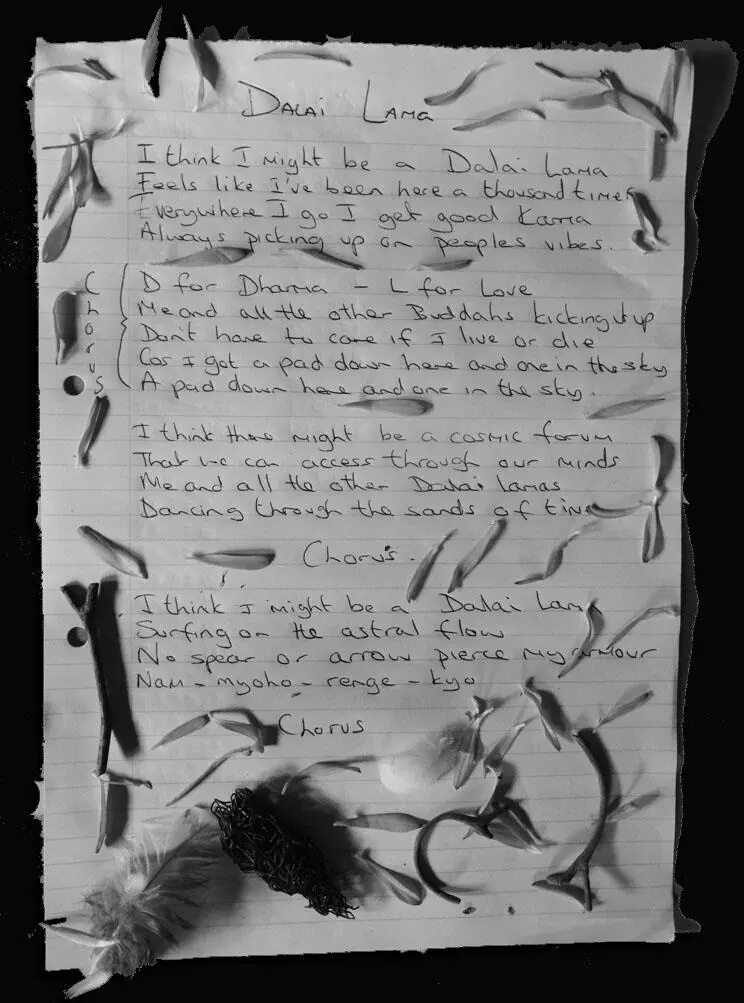 Dalai Lama
I think I might be a Dalai Lama
Feels like I've been here a thousand times
Everywhere I go I get good Karma
Always picking up on peoples vibes.
Chorus
D for Dharma - L for Love
Me and all the other Buddahs kicking it up
Don't have to care if I live or die
Cos I got a pad down here and one in the sky
A pad down here and one in the sky.
I think there might be a cosmic forum
That we can access through our minds
Me and all the other Dalai Lamas
Dancing through the sands of time
Chorus.
I think I might be a Dalai Lama
Surfing on the astral flow
No spear or arrow pierce my armour
Nam-myoho-renge-kyo
Chorus